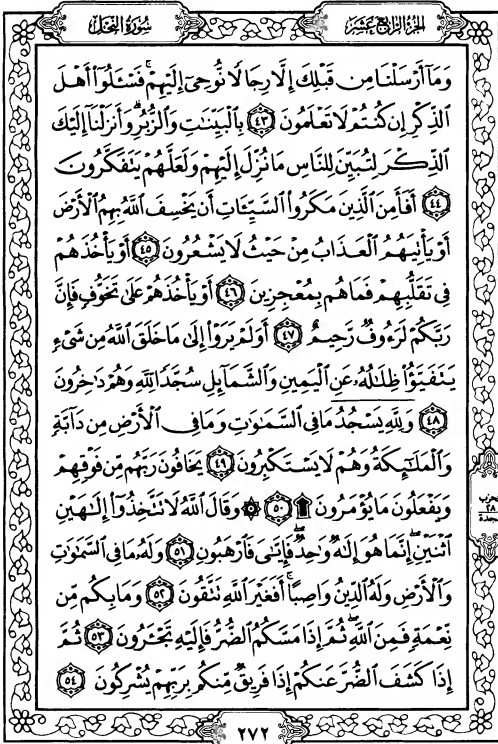 سُورَةُ النَّحۡلِ
الجزء الرابع عشر
وَمَآ أَرۡسَلۡنَا مِن قَبۡلِكَ إِلَّا رِجَالًا نُّوحِىٓ إِلَيۡهِمۡۚ فَسۡـَٔلُوٓاْ أَهۡلَ
ٱلذِّكۡرِ إِن كُنتُمۡ لَا تَعۡلَمُونَ ٤٣ بِٱلۡبَيِّنَٰتِ وَٱلزُّبُرِۗ وَأَنزَلۡنَآ إِلَيۡكَ
ٱلذِّكۡرَ لِتُبَيِّنَ لِلنَّاسِ مَا نُزِّلَ إِلَيۡهِمۡ وَلَعَلَّهُمۡ يَتَفَكَّرُونَ
٤٤ أَفَأَمِنَ ٱلَّذِينَ مَكَرُواْ ٱلسَّيِّـَٔاتِ أَن يَخۡسِفَ ٱللَّهُ بِهِمُ ٱلۡأَرۡضَ
أَوۡ يَأۡتِيَهُمُ ٱلۡعَذَابُ مِنۡ حَيۡثُ لَا يَشۡعُرُونَ ٤٥ أَوۡ يَأۡخُذَهُمۡ
فِى تَقَلُّبِهِمۡ فَمَا هُم بِمُعۡجِزِينَ ٤٦ أَوۡ يَأۡخُذَهُمۡ عَلَىٰ تَخَوُّفٍ فَإِنَّ
رَبَّكُمۡ لَرَءُوفٌ رَّحِيمٌ ٤٧ أَوَلَمۡ يَرَوۡاْ إِلَىٰ مَا خَلَقَ ٱللَّهُ مِن شَىۡءٍ
يَتَفَيَّؤُاْ ظِلَٰلُهُۥ عَنِ ٱلۡيَمِينِ وَٱلشَّمَآئِلِ سُجَّدًا لِّلَّهِ وَهُمۡ دَٰخِرُونَ
٤٨ وَلِلَّهِ يَسۡجُدُ مَا فِى ٱلسَّمَٰوَٰتِ وَمَا فِى ٱلۡأَرۡضِ مِن دَآبَّةٍ
وَٱلۡمَلَٰٓئِكَةُ وَهُمۡ لَا يَسۡتَكۡبِرُونَ ٤٩ يَخَافُونَ رَبَّهُم مِّن فَوۡقِهِمۡ
وَيَفۡعَلُونَ مَا يُؤۡمَرُونَ ۩ ٥٠ ۞ وَقَالَ ٱللَّهُ لَا تَتَّخِذُوٓاْ إِلَٰهَيۡنِ
ٱثۡنَيۡنِۖ إِنَّمَا هُوَ إِلَٰهٌ وَٰحِدٌ فَإِيَّٰىَ فَٱرۡهَبُونِ ٥١ وَلَهُۥ مَا فِى ٱلسَّمَٰوَٰتِ
وَٱلۡأَرۡضِ وَلَهُ ٱلدِّينُ وَاصِبًاۚ أَفَغَيۡرَ ٱللَّهِ تَتَّقُونَ ٥٢ وَمَا بِكُم مِّن
نِّعۡمَةٍ فَمِنَ ٱللَّهِۖ ثُمَّ إِذَا مَسَّكُمُ ٱلضُّرُّ فَإِلَيۡهِ تَجۡـَٔرُونَ ٥٣ ثُمَّ
إِذَا كَشَفَ ٱلضُّرَّ عَنكُمۡ إِذَا فَرِيقٌ مِّنكُم بِرَبِّهِمۡ يُشۡرِكُونَ ٥٤
حزب
٢٨
سجدة
٢٧٢